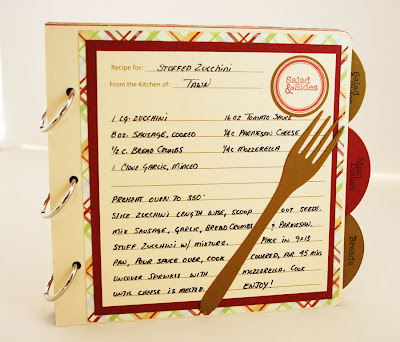 Recipe for: STUFFED ZUCCHINI
From the Kitchen of: TAWN
Salad
& Sides
1 LG. ZUCCHINI
16 OZ TOMATO SAUCE
8 OZ. SAUSAGE, COOKED
1/4 C PARMESAN CHEESE
1/2 C. BREAD CRUMBS
1/4 C MOZZERELLA
1 CLOVE GARLIC, MINCED
PREHEAT OVEN TO 350°
SLICE ZUCCHINI LENGTH WISE, SCOOP OUT SEEDS.
MIX SAUSAGE, GARLIC, BREAD CRUMBS & PARMESAN.
STUFF ZUCCHINI W/ MIXTURE. PLACE IN 9X13
PAN, POUR SAUCE OVER, COOK COVERED, FOR 45 MIN.
UNCOVER SPRINKLE WITH MOZZERELLA. COOK
UNTIL CHEESE IS MELTED. ENJOY!
Salad
& Sides
Main
Dishes
Breads